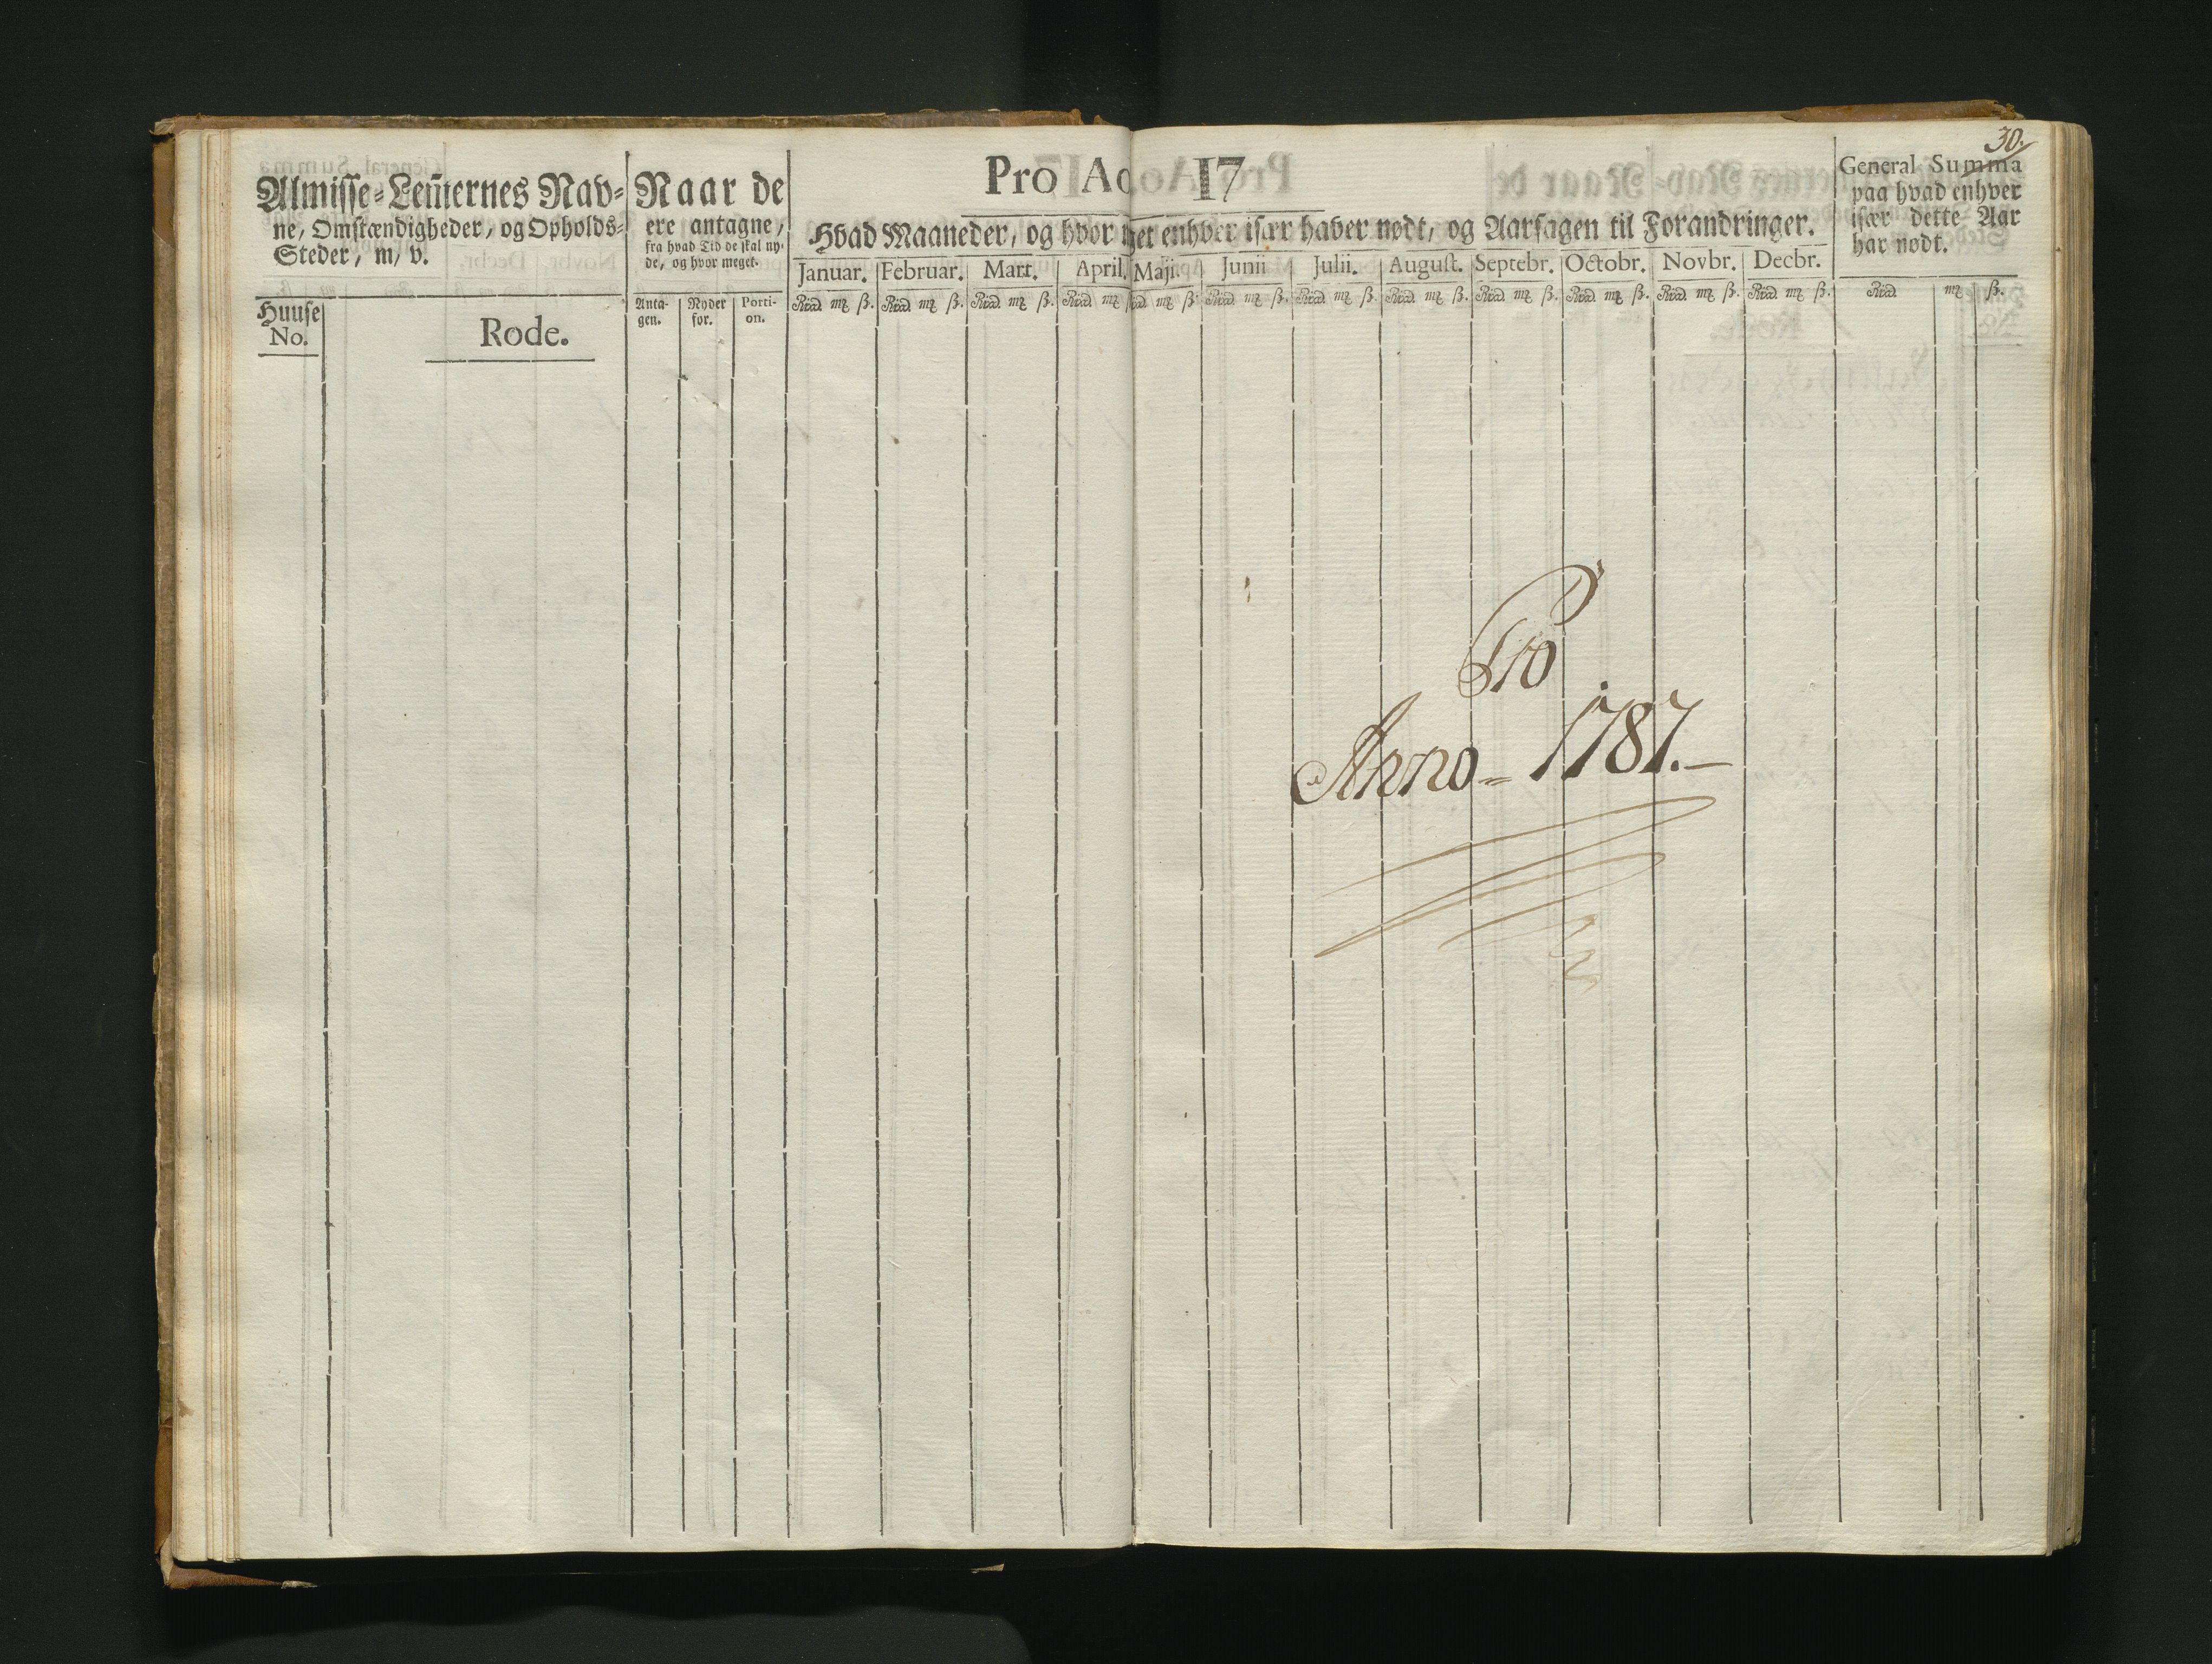 30.
Almisse-Lemmernes Nav-
ne, Omstændigheder, og Opholds-
Steder, m, v.
Huuse
No.
Rode.
Naar de
ere antagne,
fra hvad Tid de skal ny-
de, og hvor meget.
Anta-
gen.
Nyder
for.
Porti-
on.
Pro Ao 17
Hvad Maaneder, og hvor meget enhver især haver nødt, og Aarsagen til Forandringer.
Januar. Februar. Mart. April. Maji. Junii Julii. August. Septebr. Octobr. Novbr. Decbr.
Rd. mz ß. Rd. mz ß. Rd. mz ß. Rd. mz d. mz ß. Rd. mz ß. Rd. mz ß. Rd. mz ß. Rd. mz ß. Rd. mz ß. Rd. mz ß. Rd. mz ß.
General Summa
paa hvad enhver
især dette Aar
har nødt.
Rd. mz ß.
Pro
Anno 1787.